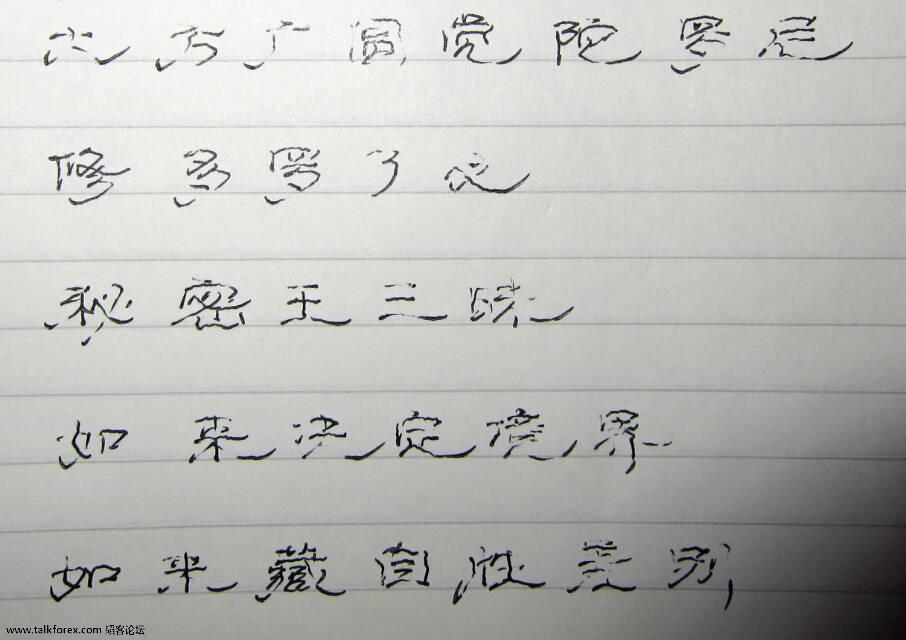 大方广圆觉陀罗尼
修多罗了义
秘密王三昧
如来决定境界
如来藏自性差别
www.talkforex.com 韬客论坛